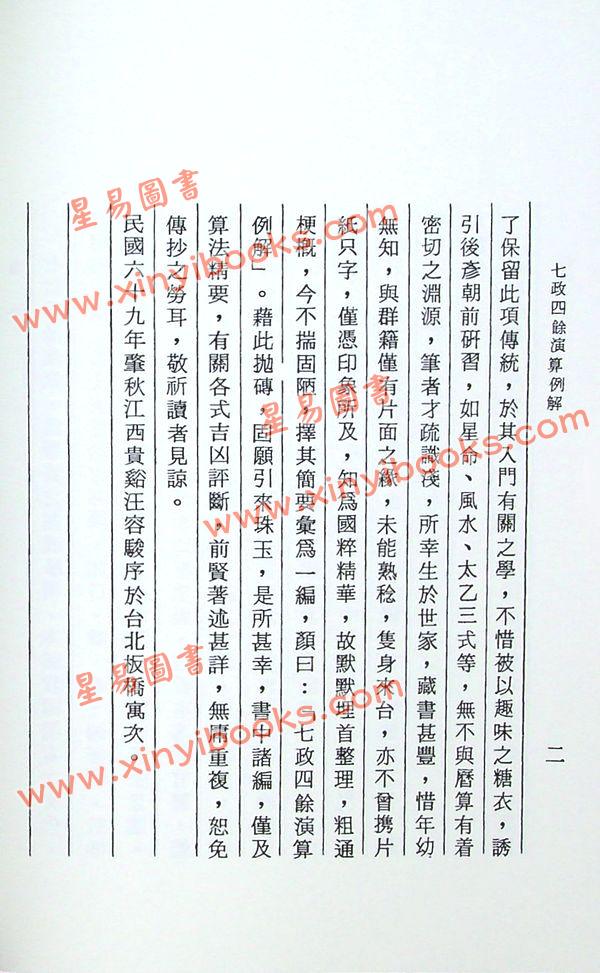 七政四餘演算例解
二
了保留此項傳統，於其入門有關之學，不惜被以趣味之糖衣，誘
引後彥朝前研習，如星命、風水、太乙三式等，無不與曆算有着
密切之淵源，筆者才疏識淺，所幸生於世家，藏書甚豐，惜年幼
無知，與群籍僅有片面之緣，未能熟稔，隻身來台，亦不曾携片
紙只字，僅憑印象所及，知爲國粹精華，故默默埋首整理，粗通
梗概，今不揣固陋，擇其簡要彙爲一編，顏曰：「七政四餘演算
例解」。藉此拋磚，固願引來珠玉，是所甚幸，書中諸編，僅及
算法精要，有關各式吉凶評斷，前賢著述甚詳，無庸重複，恕免
傳抄之勞耳，敬祈讀者見諒。
民國六十九年肇秋江西貴谿汪容駿序於台北板橋寓次。
星易圖書
www.xinyibooks.com
星易圖書
www.xinyibooks.com
星易圖書
www.xinyibooks.com